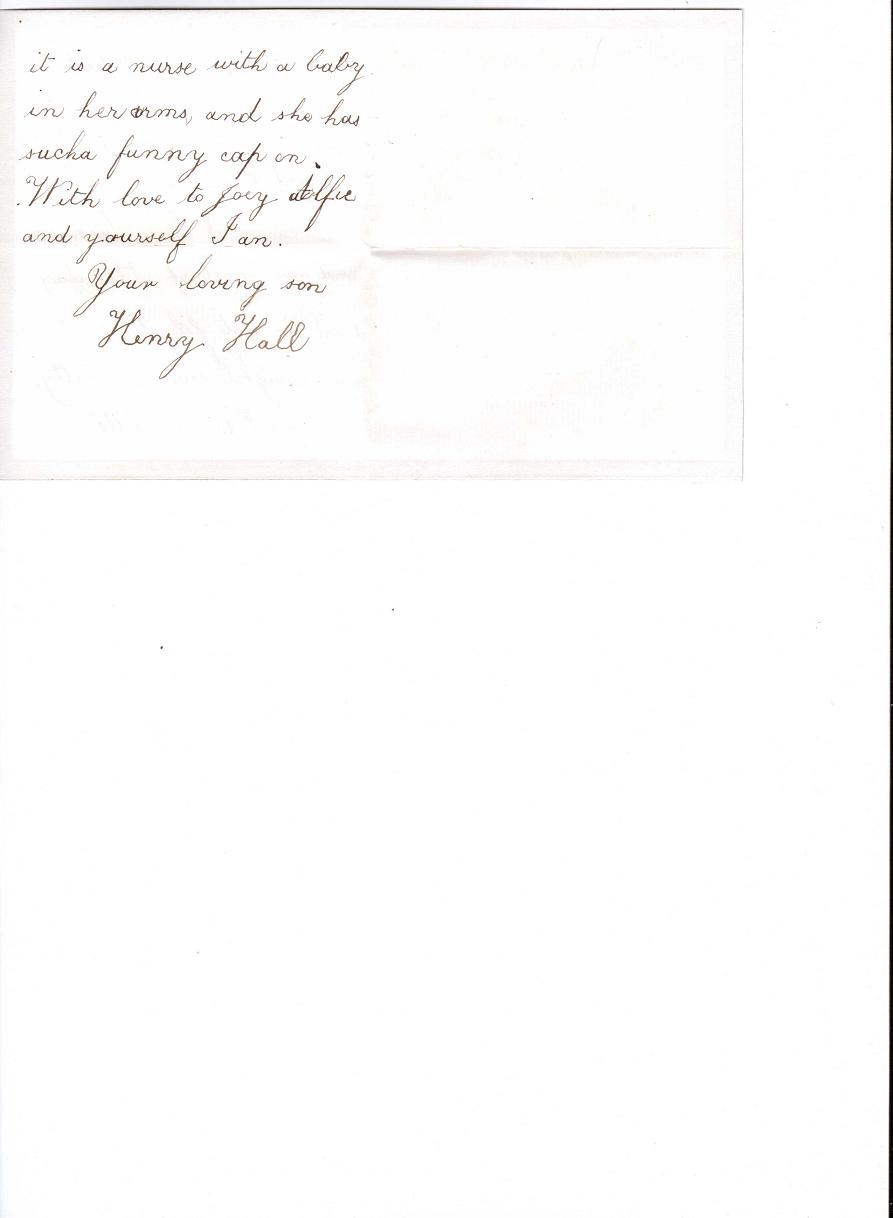 it is a nurse with a baby
in her arms, and she has
sucha funny cap on.
With love to Joey Alfie
and yourself I an.
Your loving son
Henry Hall